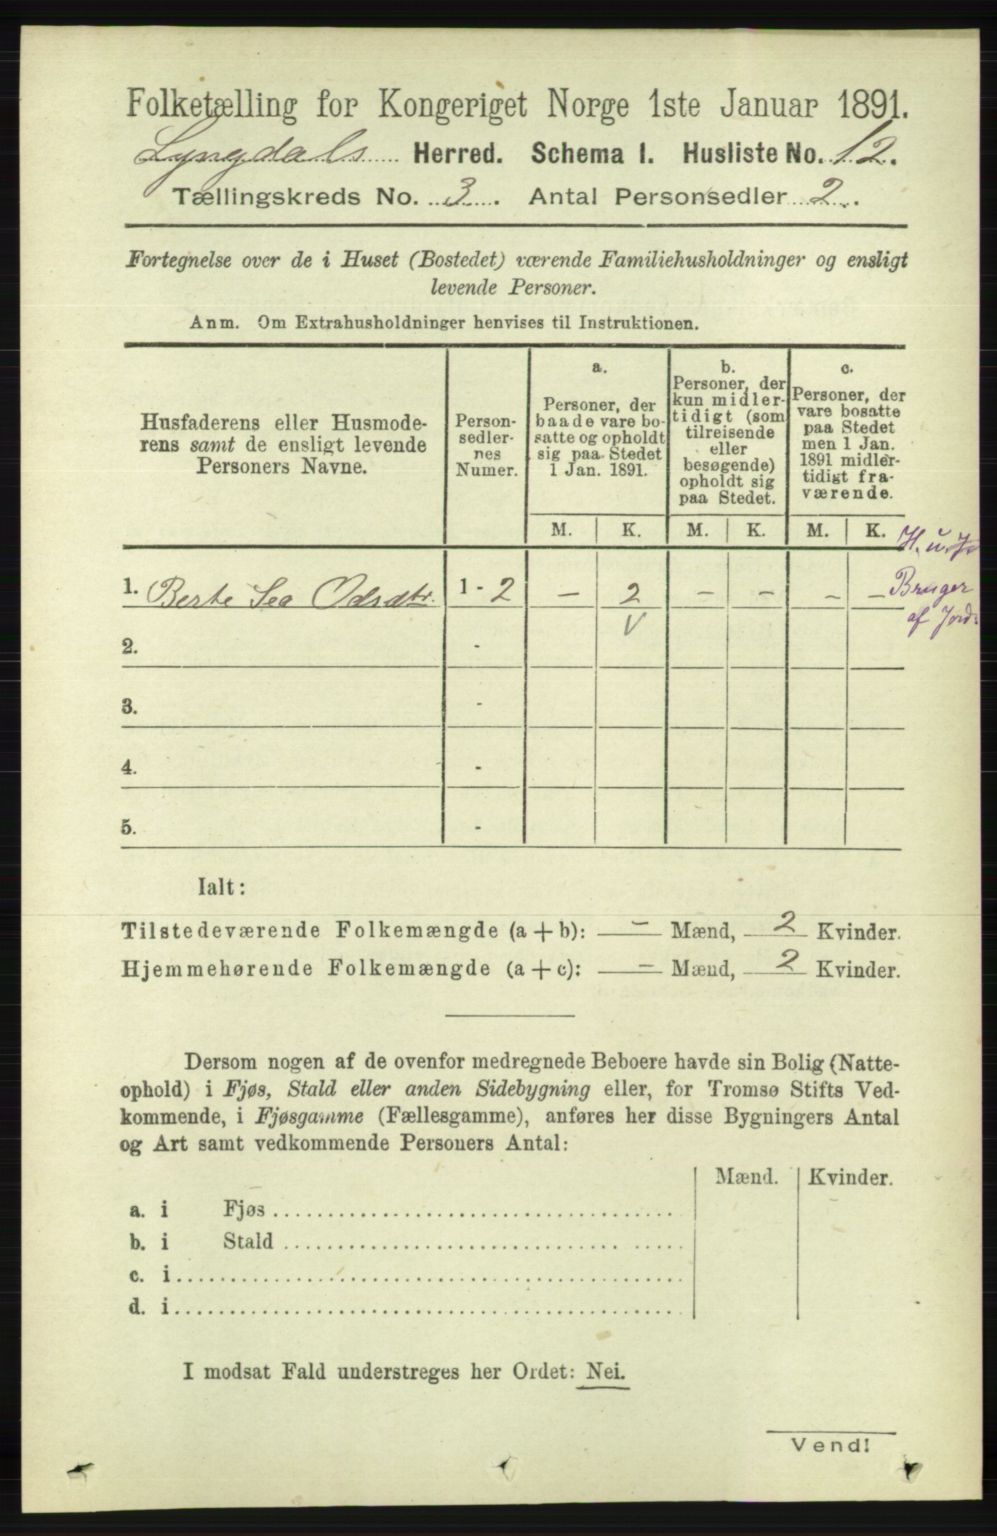 Folketælling for Kongeriget Norge 1ste Januar 1891.
Lyngdals Herred. Schema 1. Husliste No. 12.
Tællingskreds No. 3. Antal Personsedler 2.
Fortegnelse over de i Huset (Bostedet) værende Familiehusholdninger og ensligt
levende Personer.
Anm. Om Extrahusholdninger henvises til Instruktionen.
Husfaderens eller Husmode-
rens samt de ensligt levende
Personers Navne.
Person-
sedler-
nes
Numer.
a.
Personer, der
baade vare bo-
satte og opholdt
sig paa Stedet
1 Jan. 1891.
b.
Personer, der
kun midler-
tidigt (som
tilreisende
eller
besøgende)
opholdt sig
paa Stedet.
c.
Personer, der
vare bosatte
paa Stedet
men 1 Jan.
1891 midler-
tidigt fra-
værende.
M. K. M. K. M. K.
H. u. J
1. Berte Sea Odsdtr. 1 - 2 – 2 – – – – Bruger
af Jord
2. -
3. -
4. -
5. -
Ialt:
Tilstedeværende Folkemængde (a + b): – Mænd, 2 Kvinder.
Hjemmehørende Folkemængde (a + c): – Mænd, 2 Kvinder.
Dersom nogen af de ovenfor medregnede Beboere havde sin Bolig (Natte-
ophold) i Fjøs, Stald eller anden Sidebygning eller, for Tromsø Stifts Ved-
kommende, i Fjøsgamme (Fællesgamme), anføres her disse Bygningers Antal
og Art samt vedkommende Personers Antal:
Mænd. Kvinder.
a. i Fjøs
b. i Stald
c. i
d. i
I modsat Fald understreges her Ordet: Nei.
Vend!